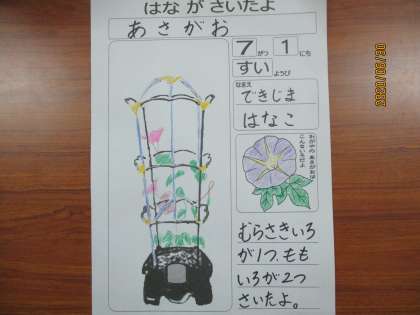 はな が さいたよ
あさがお
7がつ 1にち
すい ようび
なまえ
できじま
はなこ
おがやの あさがおは
こんないろだよ
むらさきいろ
が1つ、もも
いろが2つ
さいたよ。